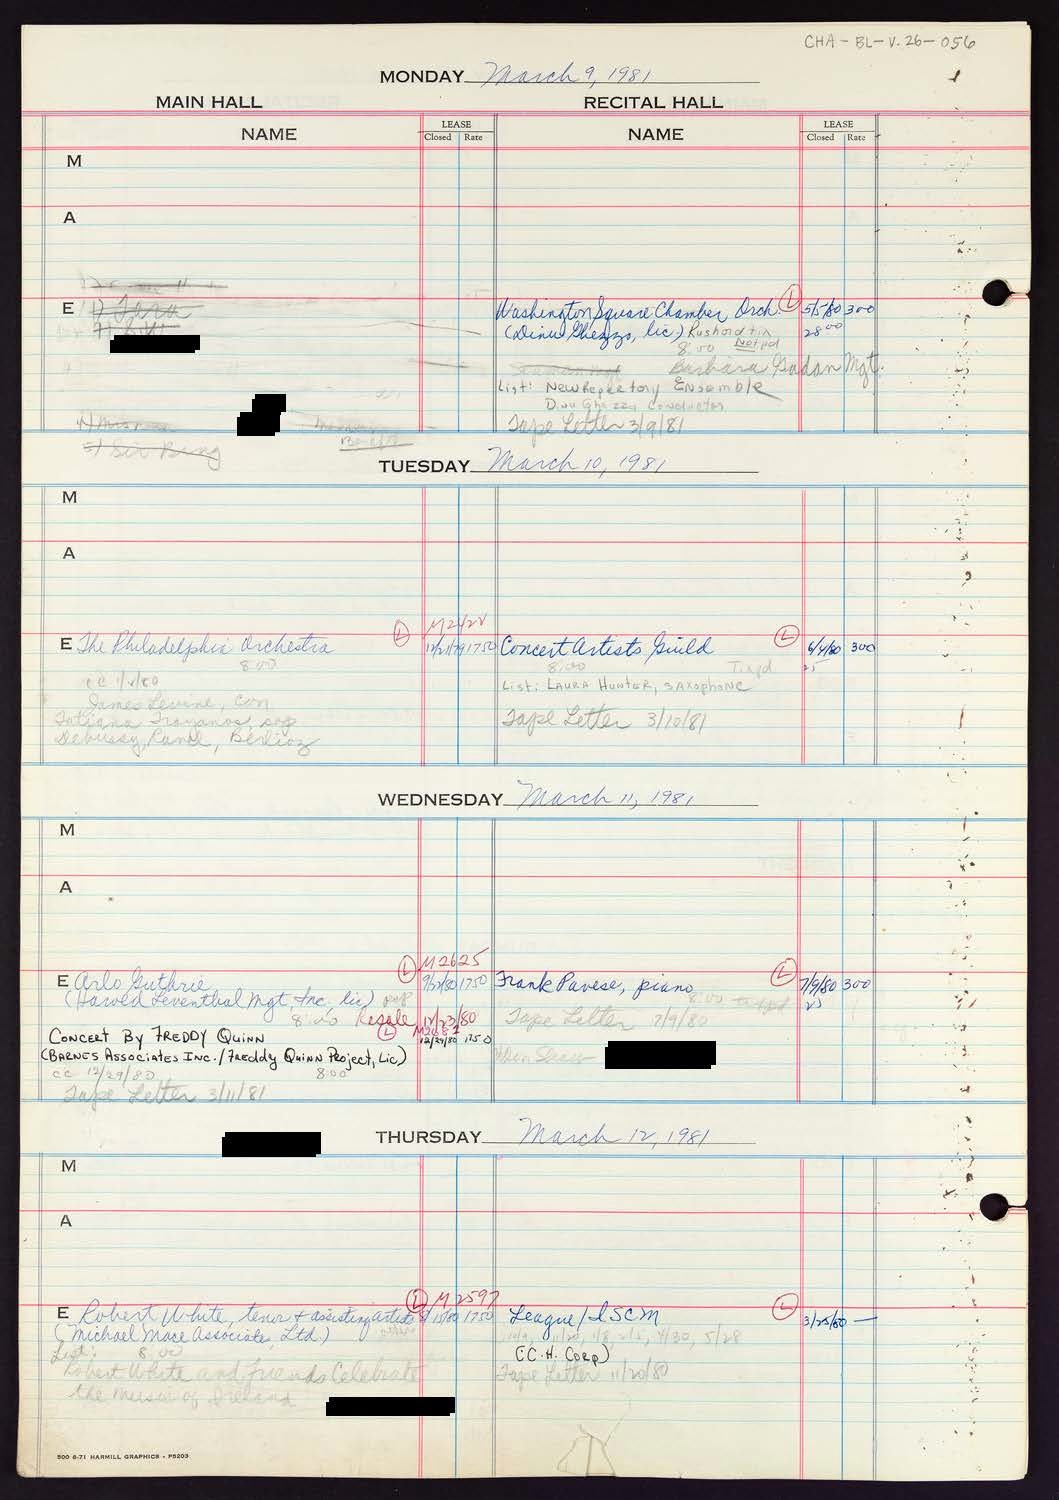 CHA-BL-V.26-056
MONDAY March 9, 1981
MAIN HALL RECITAL HALL
NAME LEASE Closed Rate NAME LEASE Closed Rate
M
A
E
Washington Square Chamber Orch. L 5/5/80 300
(Dinu Ghezzo, lic.) 28 00
8:00 Not pd
Barbara Mgt.
List: New Repertory Ensemble
Dinu Ghezzo conductor
Tape Letter 3/9/81
5) Sir Bing
Benefit
TUESDAY March 10, 1981
M
A
M2428
E The Philadelphia Orchestra L 12/21/79 1750 Concert Artists Guild L 6/4/80 300
8:00 8:00 25
cc 1/2/80 List: LAURA HUNTER, SAXOPHONE
James Levine, con
Tatiana Troyanos, sop Tape Letter 3/10/81
Debussy, Ravel, Berlioz
WEDNESDAY March 11, 1981
M
A
M2625
E Arlo Guthrie L 9/22/80 1750 Frank Pavese, piano L 7/9/80 300
(Harold Leventhal Mgt, Inc. lic) 8:00 25
8:00 Resale 12/23/80 Tape Letter 7/9/80
CONCERT BY FREDDY QUINN L 12/29/80 1750
(BARNES ASSOCIATES INC./FREDDY QUINN PROJECT, LIC)
cc 12/29/80 8:00
Tape Letter 3/11/81
THURSDAY March 12, 1981
M
A
L M2597
E Robert White, tenor + assisting artists 1750 League/ISCM L 3/25/80 —
(Michael Mace Associates, Ltd.) 4/30, 5/28
List: 8:00 (C.H. CORP)
Robert White and Friends Celebrate Tape Letter 11/20/80
the Music of Ireland
500 6-71 HARMILL GRAPHICS - P5203